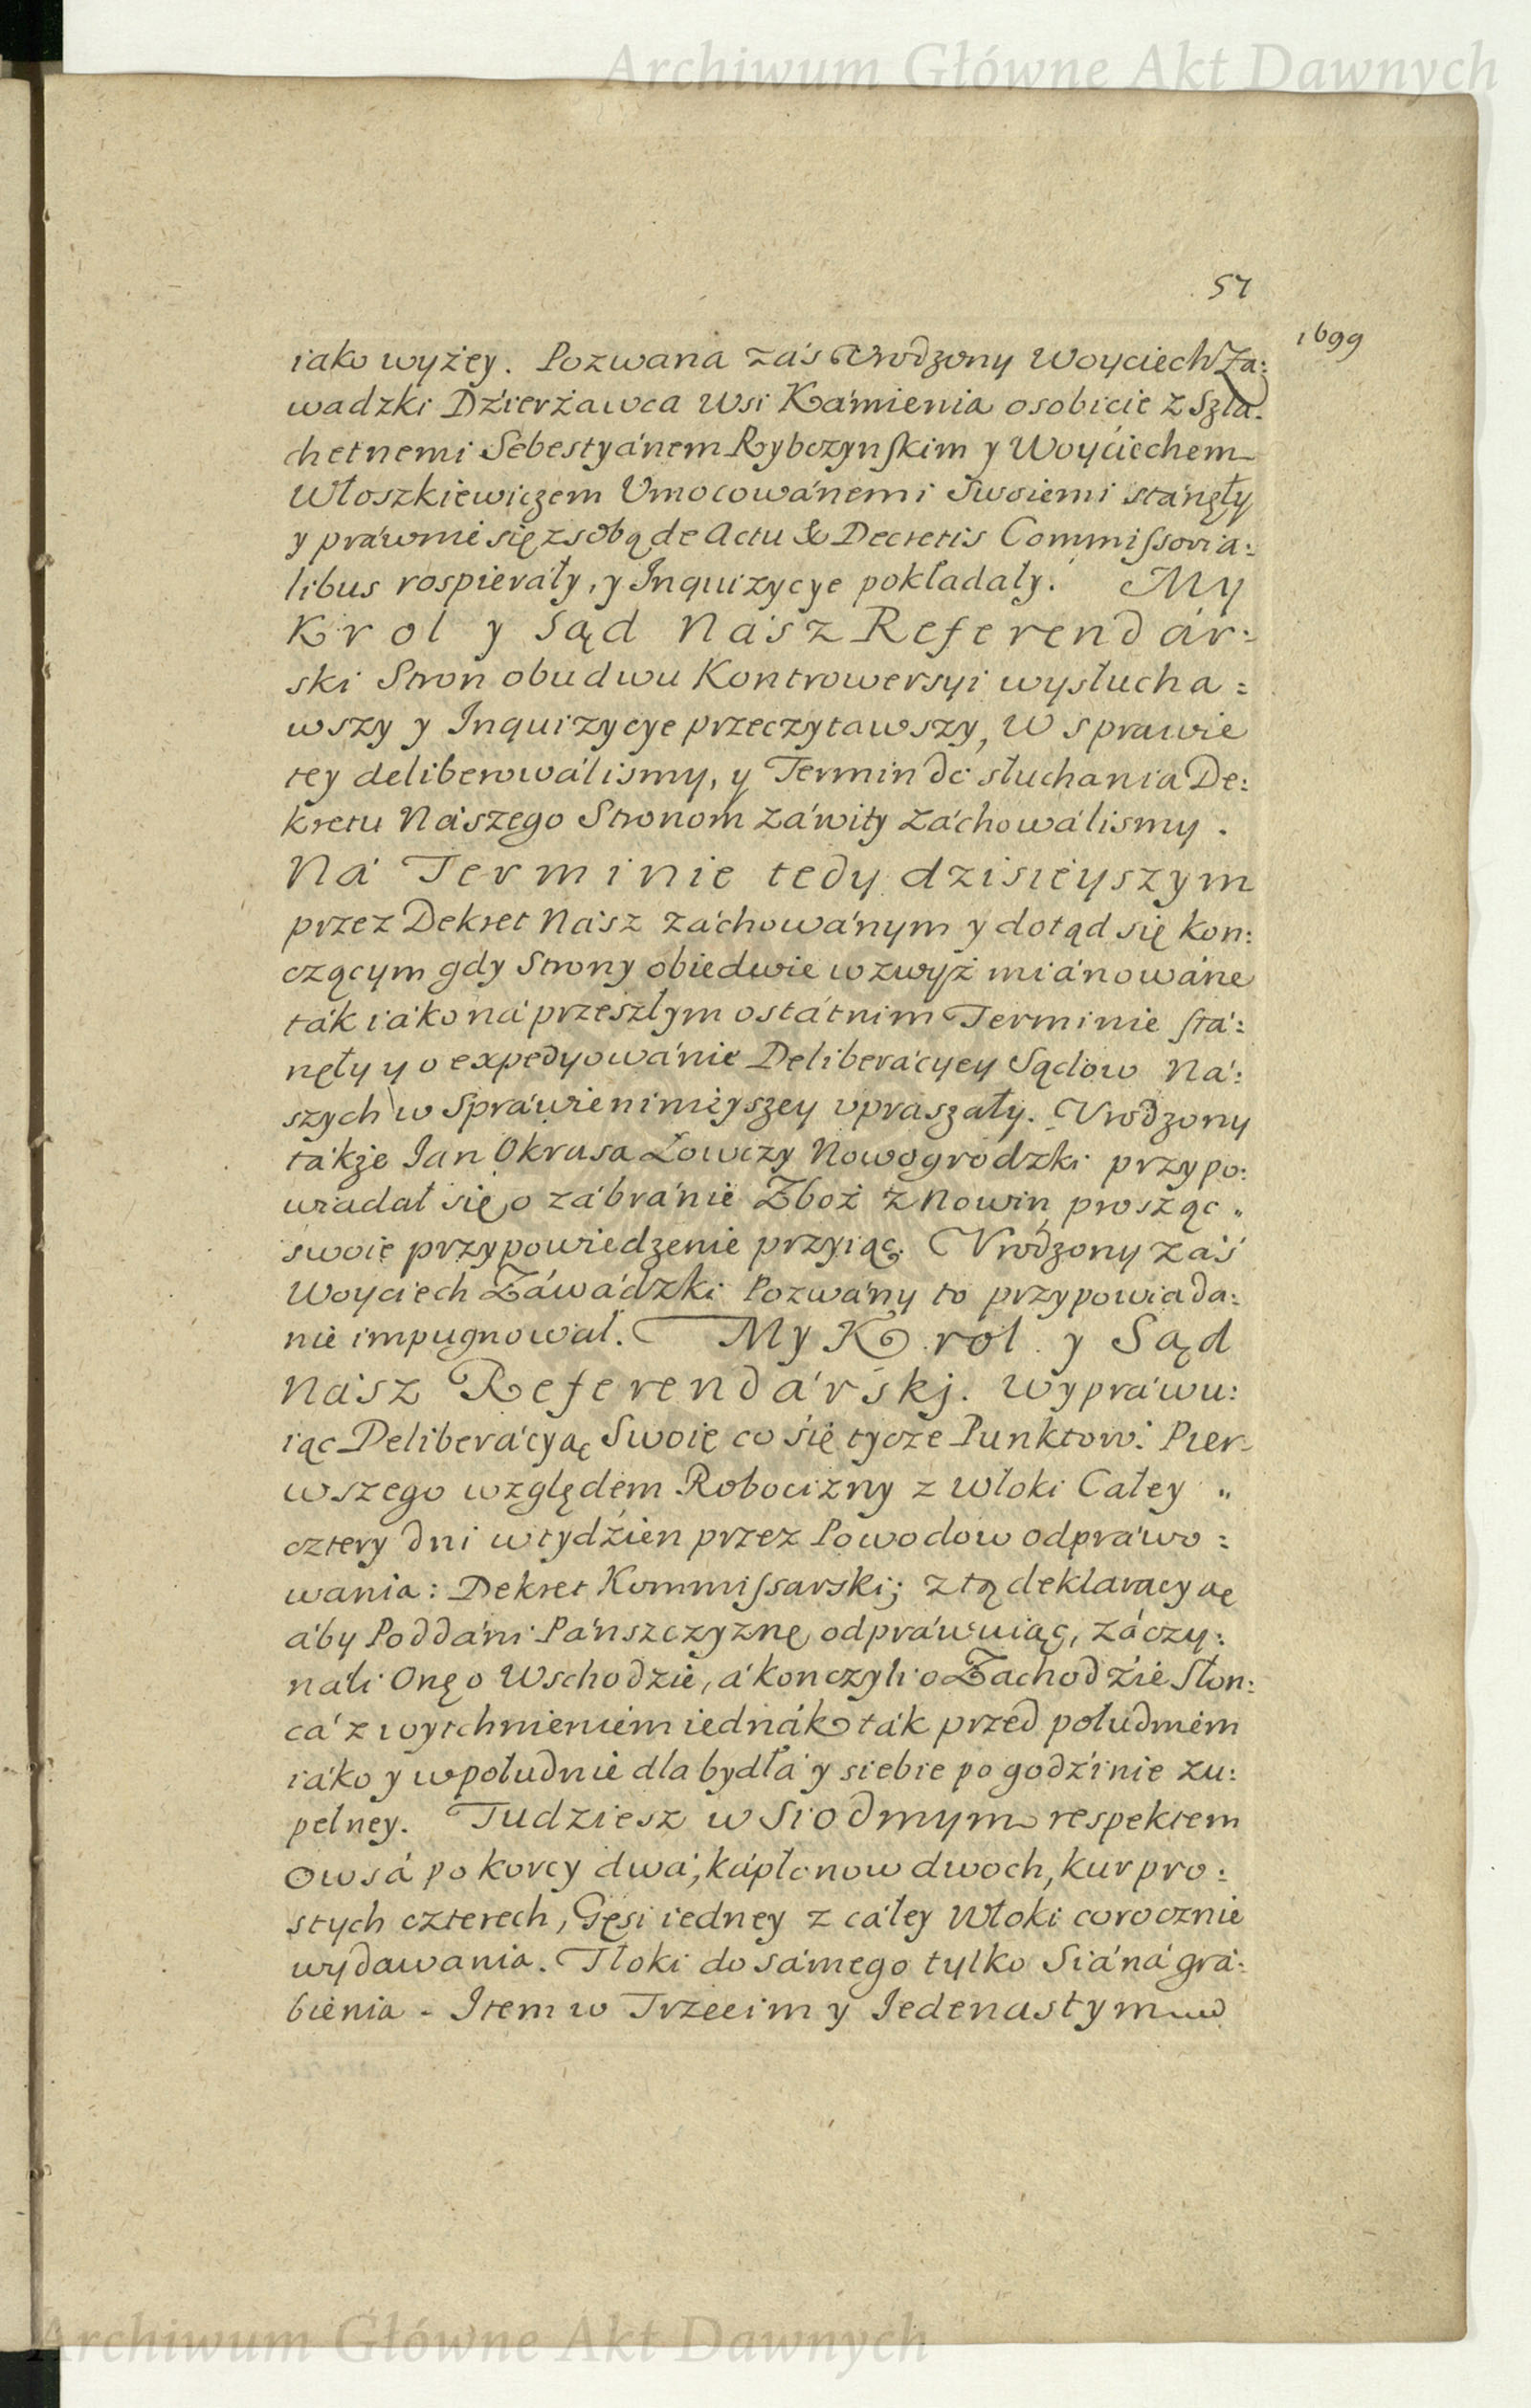 Archiwum Główne Akt Dawnych
57
1699
iako wyżey. Pozwana záś Vrodzony Woyciech Za:
wadzki Dźierżawca Wsi Kámienia osobiċie z Szla:
chetnemi Sebestyánem Rybczynſkim y Woyciechem
Włoszkiewiczem Vmocowánemi Swoiemi stánęły
y práwnie się z sobą de Actu & Decretis Commiſsoria:
libus rospieráły, y Inquizycye pokładały. My
Krol y Sąd Nász Referendár:
ski Stron obudwu Kontrowersyi wysłucha:
wszy y Inquizycye przeczytawszy, W sprawie
tey deliberowálismy, y Termin do słuchania De:
kretu Nászego Stronom záwity záchowálismy.
Ná Terminie tedy dzisieyszym
przez Dekret Nász záchowánym y dotąd się kon:
czącym gdy Strony obiedwie wzwyż miánowáne
ták iáko ná przeszłym ostátnim Terminie stá:
nęły y o expedyowánie Deliberácyey Sądow Ná:
szych w Spráwie ninieyszey vpraszáły. Vrodzony
tákże Ian Okrasa Łowczy Nowogrodzki przypo:
wiadał się o zábránie Zboż z Nowin prosząc „
swoie przypowiedzenie przyiąc. Vrodzony záś
Woyciech Záwádzki Pozwány to przypowiada:
nie impugnował. My Krol y Sąd
Nász Referendárski. Wypráwu:
iąc Deliberácyąę Swoię co się tycze Punktow: Pier:
wszego względem Robocizny z Włoki Całey „
cztery dni w tydźien przez Powodow odpráwo:
wania: Dekret Kommiſsarskij z tą deklaracyąę
áby Poddáni Páńszczyznę odpráwuiąc, záczy:
náli Onę o Wschodzie, á konczyli o Zachodźie Słon:
cá z wytchnieniem iednák ták przed południem
iáko y w południe dla bydłá y siebie po godźinie zu:
pełney. Tudziesz w Siodmym respektem
Owsá po korcy dwá, kápłonow dwoch, kur pro:
stych czterech, Gęsi iedney z cáłey Włoki corocznie
wydawania. Tłoki do sámego tylko Siáná grá:
bienia - Item w Trzecim y Iedenastym w
Archiwum Główne Akt Dawnych